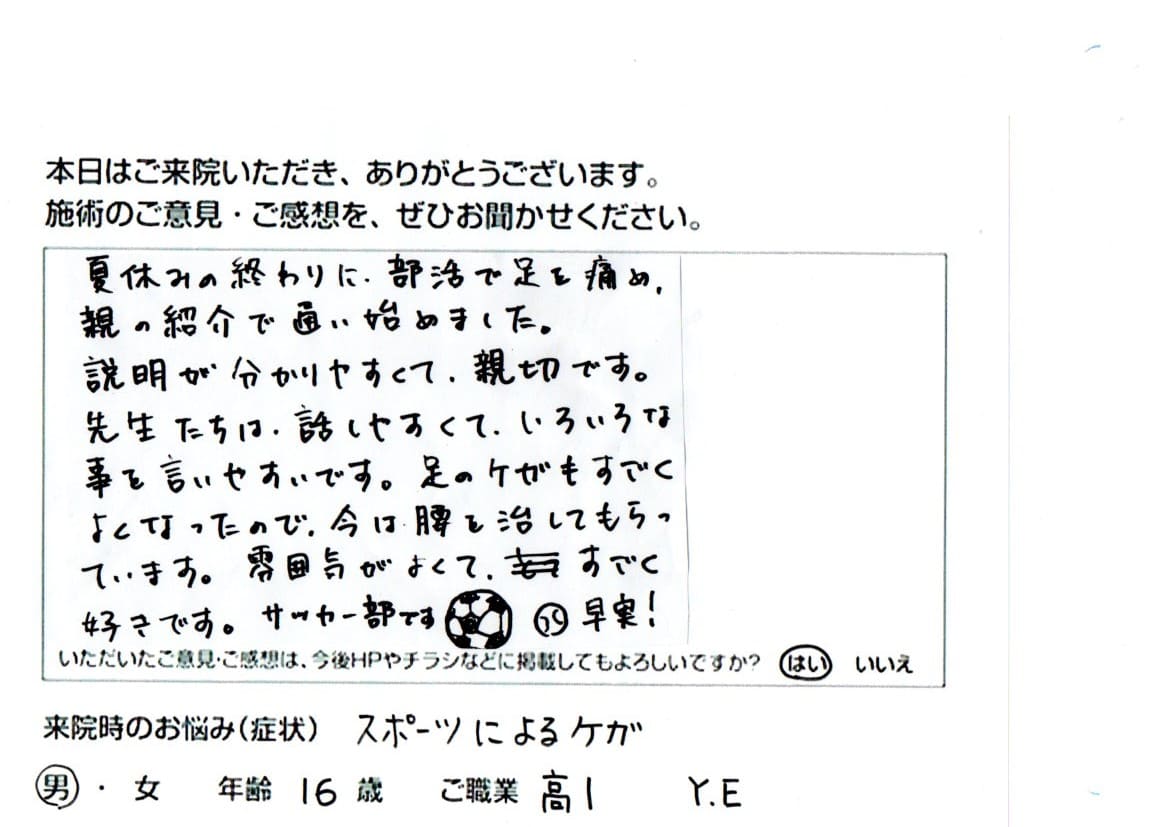 本日はご来院いただき、ありがとうございます。
施術のご意見・ご感想を、ぜひお聞かせください。
夏休みの終わりに、部活で足を痛め、
親の紹介で通い始めました。
説明が分かりやすくて、親切です。
先生たちは、話しやすくて、いろいろな
事を言いやすいです。足のケガもすごく
よくなったので、今は腰を治してもらっ
ています。雰囲気がよくて、すごく
好きです。サッカー部です 早実!
いただいたご意見・ご感想は、今後HPやチラシなどに掲載してもよろしいですか? はい いいえ
来院時のお悩み(症状) スポーツによるケガ
男・女 年齢 16 歳 ご職業 高1 Y.E